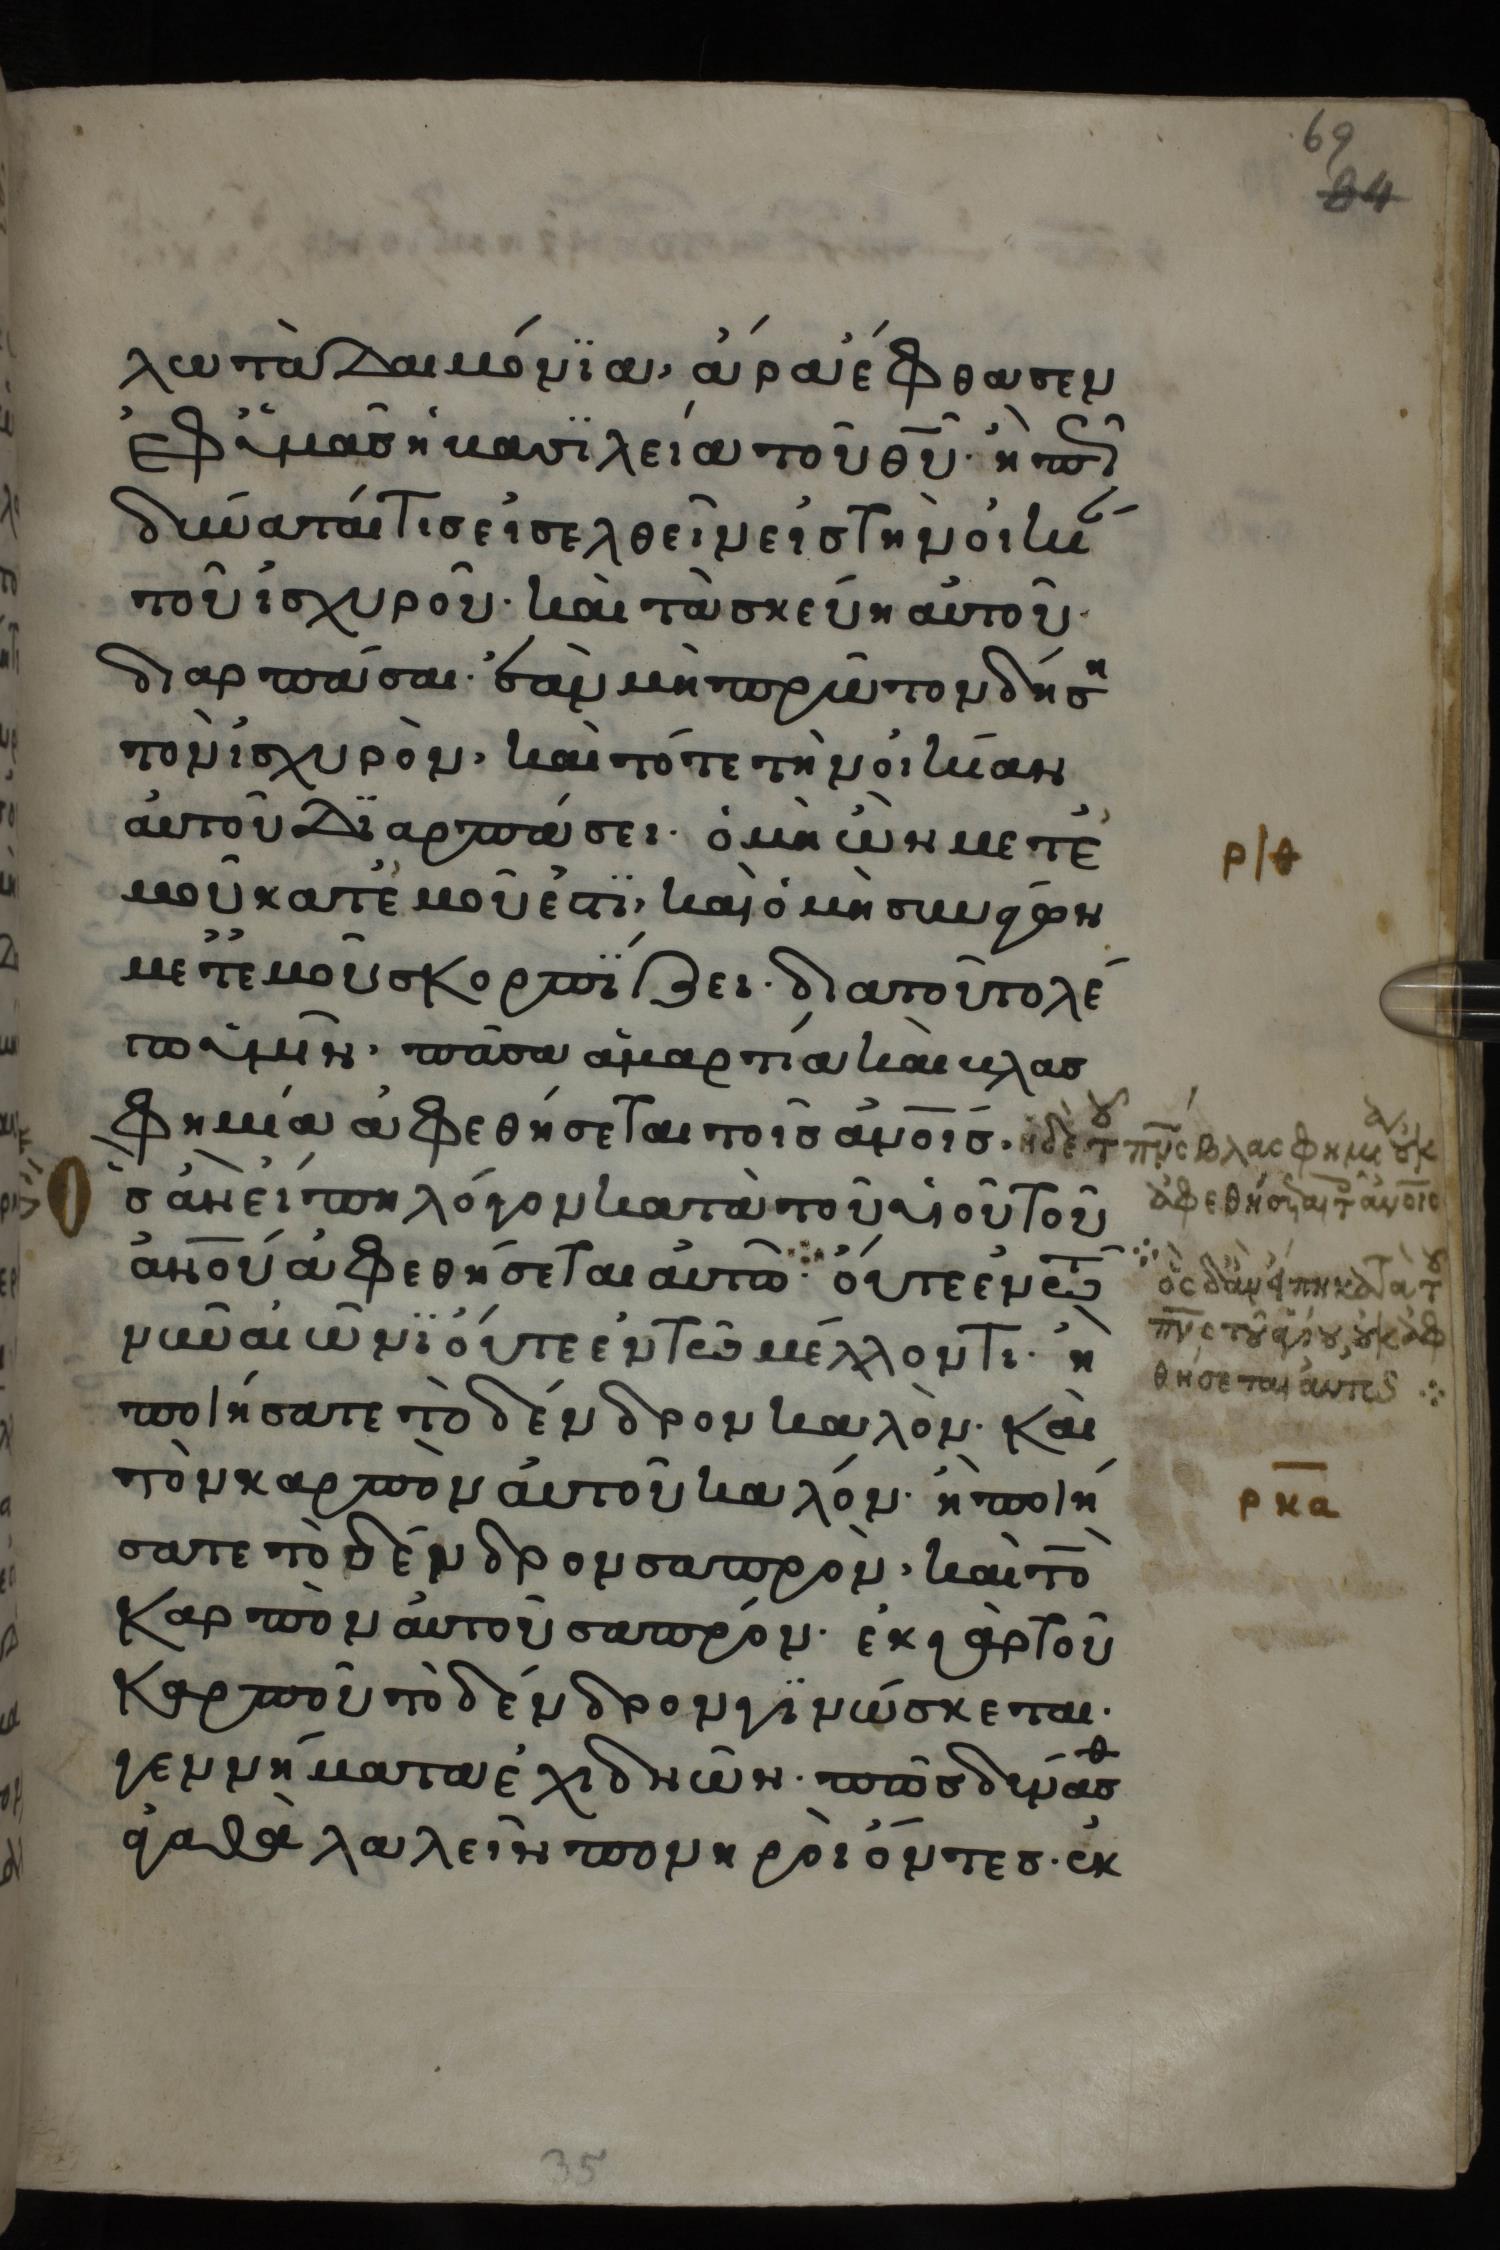 69
84
λω τὰ δαιμόνϊα, ἄρα ἔφθασεν
ἐφ ὑμᾶσ ἡ βασϊλεία τοῦ θῦ. ἢ πῶσ
δύναταί τισ εἰσελθεῖν εἰσ τὴν οἰκί
τοῦ ἰσχυροῦ. καὶ τὰ σκεύη αὐτοῦ.
διαρπάσαι. ἐὰν μὴ πρῶτον δήση
τὸν ἰσχυρὸν, καὶ τότε τὴν οἰκίαν
αὐτοῦ δϊαρπάσει. ὁ μὴ ὢν μετ ἐ
μοῦ κατ ἐμοῦ ἐστϊ, καὶ ὁ μὴ συνάγων
μετ ἐμοῦ σκορπΐζει. δια τοῦτο λέ
γω ὑμῖν, πᾶσα ἁμαρτία καὶ βλασ
φημία ἀφεθήσεται τοῖσ ἀνοῖσ. ἡ δὲ τοῦ πνσ βλασφημία οὐκ
ἀφεθήσεται τοῖσ ἀνοισ
ὃσ ἂν εἴπη λόγον κατὰ τοῦ υἱοῦ τοῦ
ἀνοῦ ἀφεθήσεται αὐτῶ ὄυτε ἐν τῶ
ὃς δ ἂν εἴπη κατὰ τοῦ
πνς τοῦ ἁγίου, οὐκ ἀφ
θήσεται αὐτῶ
νῦν αἰῶνϊ ὄυτε ἐν τῶ μέλλοντι. ἢ
ποιήσατε τὸ δένδρον καλὸν. καὶ
τὸν καρπὸν αὐτοῦ καλόν. ἢ ποιή
σατε τὸ δένδρον σαπρὸν, καὶ τὸ
καρπὸν αὐτοῦ σαπρόν. ἐκ γὰρ τοῦ
καρποῦ τὸ δένδρον γϊνώσκεται.
γεννήματα ἐχιδνῶν. πῶσ δύνασθ
ἀγαθὰ λαλεῖν πονηροὶ ὄντεσ. ἐκ
ρκα
35